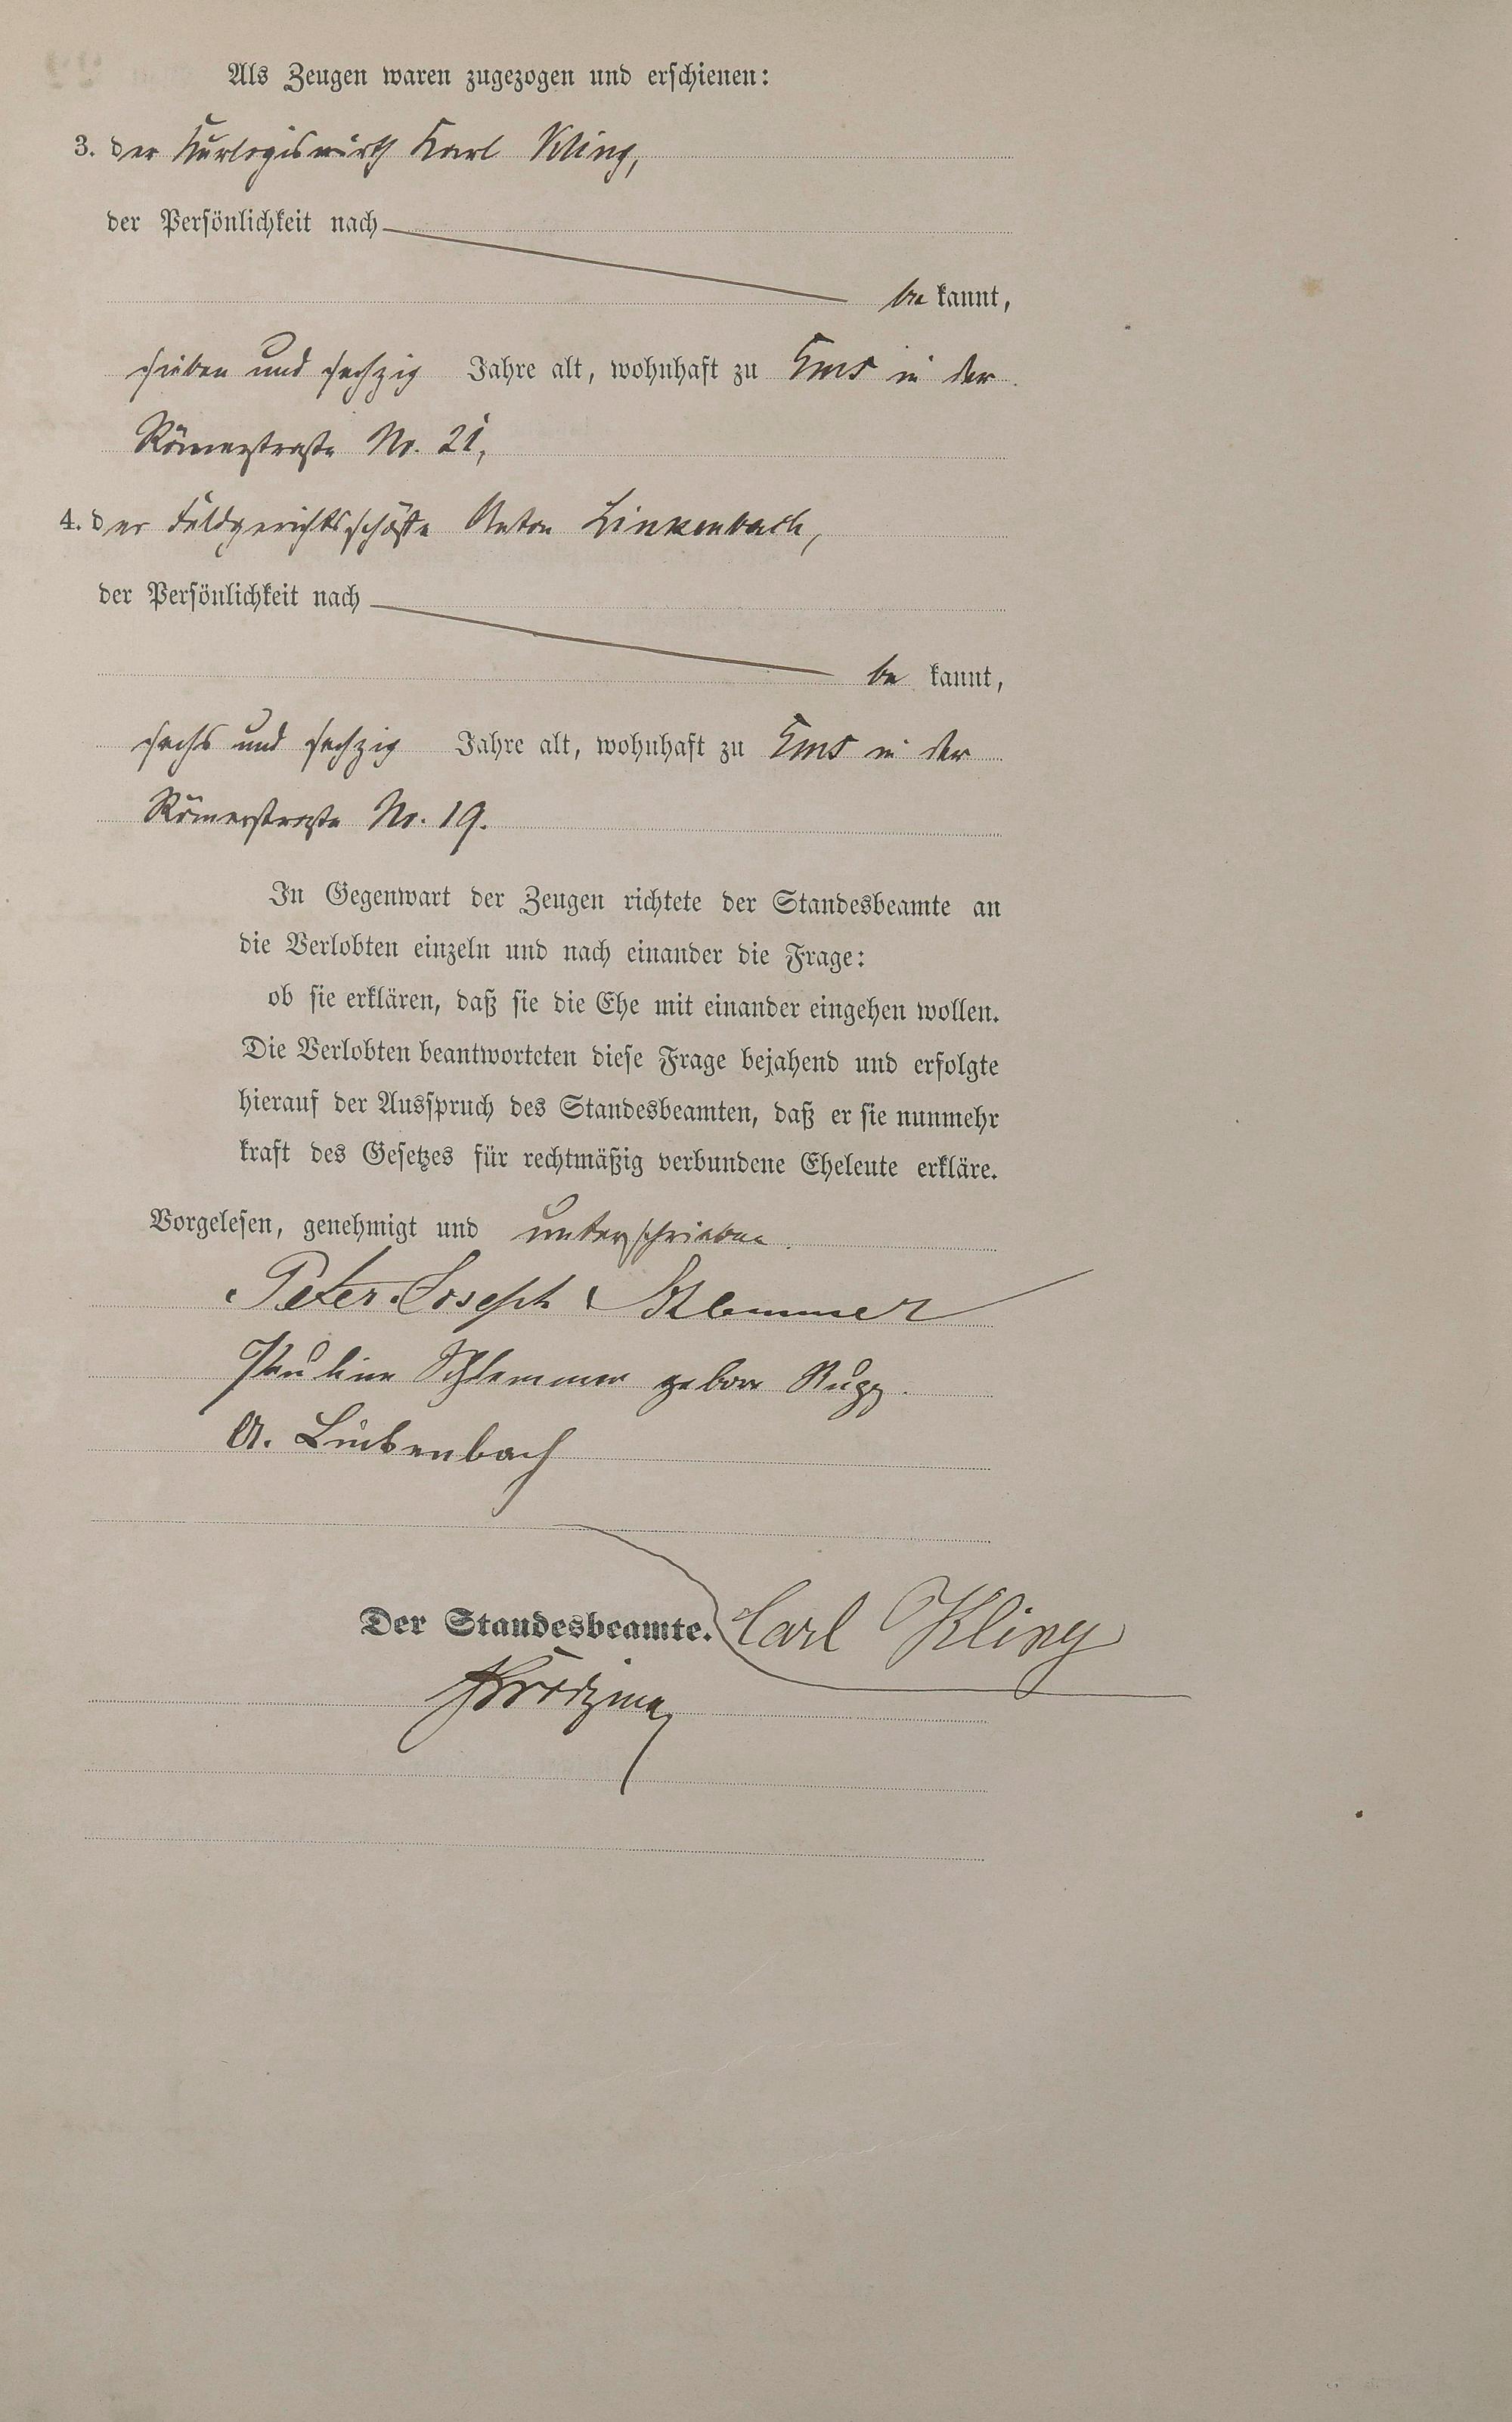 Als Zeugen waren zugezogen und erschienen:
3. der Kurlogiswirth Karl Kling,
der Persönlichkeit nach
be kannt,
sieben und sechzig Jahre alt, wohnhaft zu Ems in der
Römerstraße No. 21,
4. der Feldgerichtsschöffe Anton Linkenbach,
der Persönlichkeit nach
be kannt,
sechs und sechzig Jahre alt, wohnhaft zu Ems in der
Römerstraße No. 19.
In Gegenwart der Zeugen richtete der Standesbeamte an
die Verlobten einzeln und nach einander die Frage:
ob sie erklären, daß sie die Ehe mit einander eingehen wollen.
Die Verlobten beantworteten diese Frage bejahend und erfolgte
hierauf der Ausspruch des Standesbeamten, daß er sie nunmehr
kraft des Gesetzes für rechtmäßig verbundene Eheleute erkläre.
Vorgelesen, genehmigt und unterschrieben.
Peter Joseph Schlemmer
Pauline Schlemmer gebore Rupp.
A. Linkenbach
Der Standesbeamte. Carl Kling